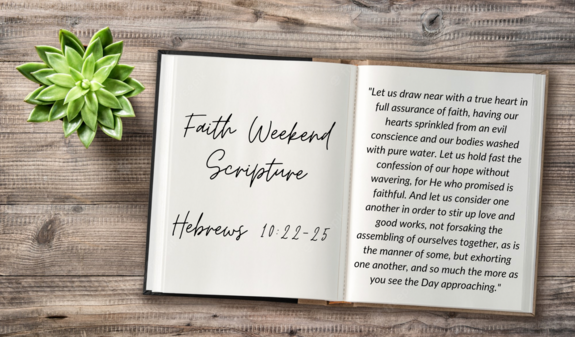 Faith Weekend
Scripture
Hebrews 10:22-25
"Let us draw near with a true heart in
full assurance of faith, having our
hearts sprinkled from an evil
conscience and our bodies washed
with pure water. Let us hold fast the
confession of our hope without
wavering, for He who promised is
faithful. And let us consider one
another in order to stir up love and
good works, not forsaking the
assembling of ourselves together, as is
the manner of some, but exhorting
one another, and so much the more as
you see the Day approaching."